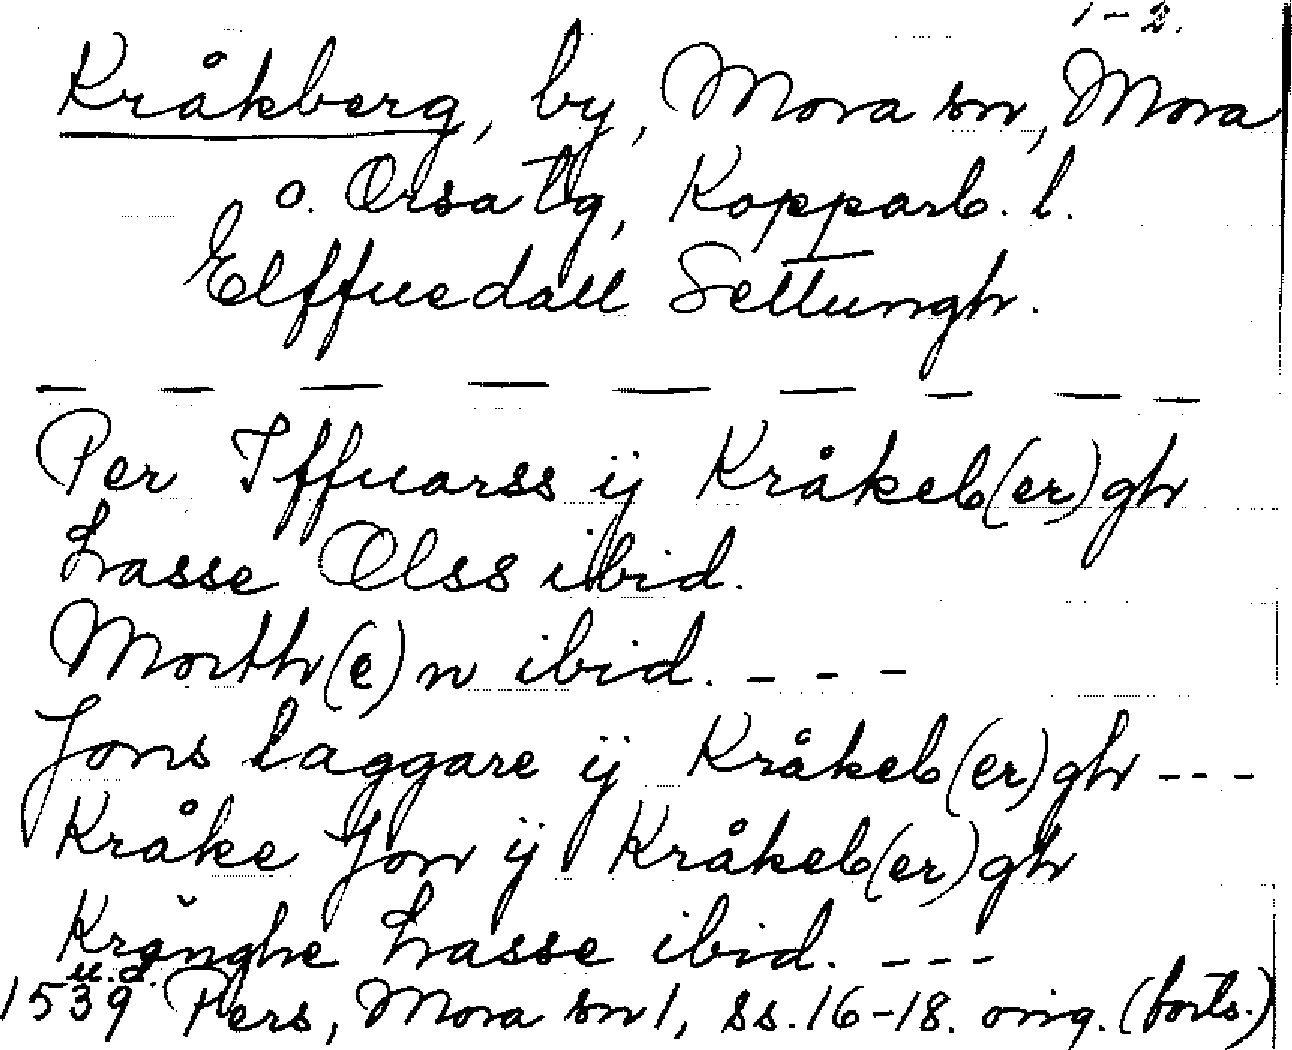 1-2.
Kråkberg, by, Mora sn, Mora
o. Orsa tg, Kopparb. l.
Elffuedall Settungh.
Per Iffuarss ij Kråkeb(er)gh
Lasse Olss ibid.
Morth(e)n ibid. - - -
Jons laggare ij Kråkeb(er)gh - - -
Kråke Jon ij Kråkeb(er)gh
Lasse ibid. - - -
u.d.
1539 Pers, Mora sn 1, ss. 16-18. orig. (forts.)